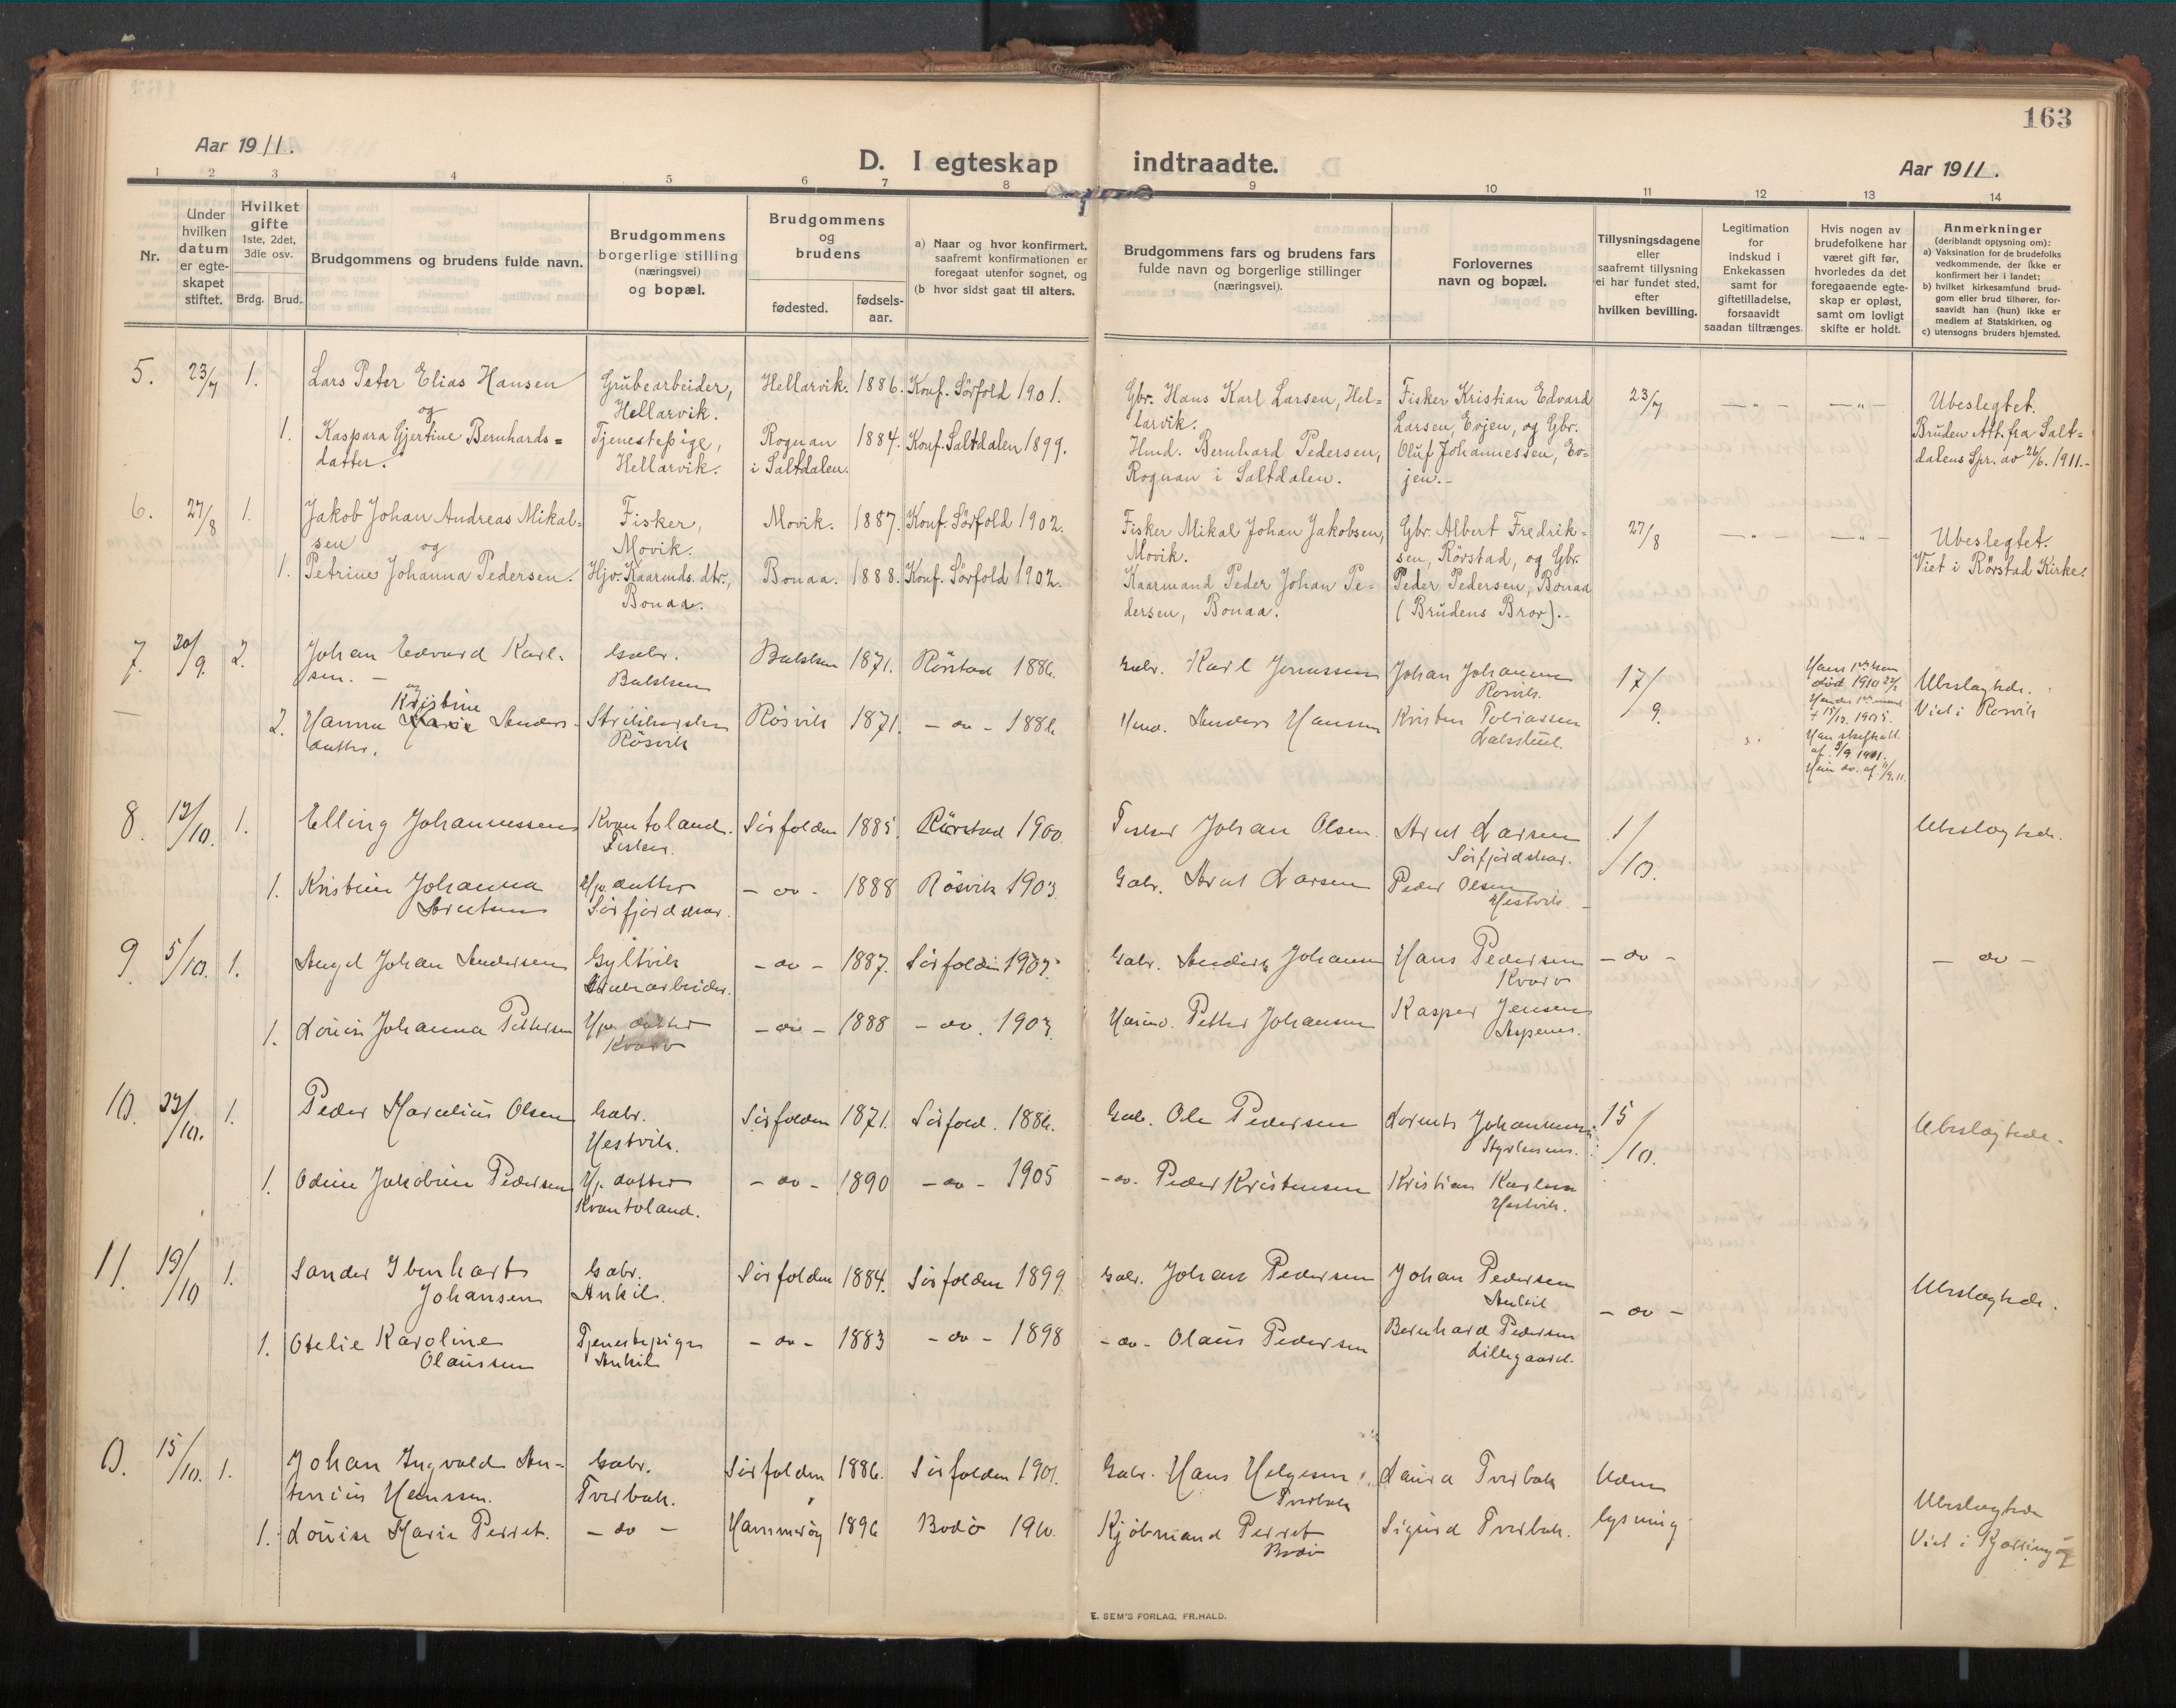 163
Aar 1911.
D. I egteskap indtraadte.
Aar 1911.
1 2 3 4 5 6 7 8 9 10 11 12 13 14
Nr.
Under hvilken datum er egte-skapet stiftet.
Hvilket gifte 1ste, 2det, 3dle osv.
Brdg. Brud.
Brudgommens og brudens fulde navn.
Brudgommens borgerlige stilling (næringsvei) og bopæl.
Brudgommens og brudens
fødested.
fødsels-aar.
a) Naar og hvor konfirmert, saafremt konfirmationen er foregaat utenfor sognet, og
(b hvor sidst gaat til alters.
Brudgommens fars og brudens fars fulde navn og borgerlige stillinger (næringsvei).
Forlovernes navn og bopæl.
Tillysningsdagene eller saafremt tillysning ei har fundet sted, efter hvilken bevilling.
Legitimation for indskud i Enkekassen samt for giftetilladelse, forsaavidt saadan tiltrænges.
Hvis nogen av brudefolkene har været gift før, hvorledes da det foregaaende egte-skap er opløst, samt om lovligt skifte er holdt.
Anmerkninger
(deriblandt opjysning om):
a) Vaksination for de brudefolks vedkommende, der ikke er konfirmert her i landet;
b) hvilket kirkesamfund brud-gom eller brud tilhører, for-saavidt han (hun) ikke er medlem af Statskirken, og
c) utensogns bruders hjemsted.
5. 23/7 1. Lars Peter Elias Hansen Grubearbeider, Hellarvik. 1886. Konf. Sörfold 1901. Gbr. Hans Karl Larsen, Hel= Fisker Kristian Edvard 23/7 —"— —"— Ubeslegtet.
og Hellarvik. larvik. Larsen, Evjen, og Gbr. Bruden Att. fra Salt=
1. Kaspara Gjertine Bernhards= Tjenestepige, Rognan 1884. Konf. Saltdalen 1899. Hmd. Bernhard Pedersen, Oluf Johannessen, Ev= dalens Spr. av 26/6. 1911.-
datter. Hellarvik. i Saltdalen. Rognan i Saltdalen. jen.-
6. 27/8 1. Jakob Johan Andreas Mikal= Fisker, Movik. 1887. Konf. Sörfold 1902. Fisker Mikal Johan Jakobsen, Gbr. Albert Fredrik= 27/8 —"— —"— Ubeslegtet.
sen og Movik. Movik. sen, Rörstad, og Gbr. Viet i Rörstad Kirke.
1. Petrine Johanna Pedersen. Hjv. Kaarmds. dtr., Bonaa. 1888. Konf. Sörfold 1902. Kaarmand Peder Johan Pe= Peder Pedersen, Bonaa
Bonaa. dersen, Bonaa. (Brudens Bror).-
7. 20/9. 2. Johan Edvard Karl- Gabr. 1871. Rörstad 1886. Gabr. Karl Jonassen Johan Johansen 17/9.
sen. - Rosvik.
og Kristine
2. Hanna Anders- Rösvik 1871. - do - 1886 Anders Hansen Kristen Tobiassen Viet i Rosvik
datter. Rösvik
8. 12/10. 1. Elling Johannessen Kvantoland. Sörfolden 1885. Rörstad 1900 Fisker Johan Olsen. Arnt Larsen 1/10. Ubeslægtede.
Fisker. Sörfjordskar.
1. Kristine Johanna Hjv. datter - do - 1888 Rösvik 1903. Gabr. Arnt Larsen Peder Olsen
Arntsen Sörfjordskar. Hestvik. -
9. 5/10. 1. Angel Johan Andersen Gyltvik - do - 1887. Sörfolden Gabr. Anders Johansen Hans Pedersen - do - - do -
Kvarv
1. Lovise Johanna Pettersen Hjv. datter - do - 1888 - do. 1903. Petter Johansen Kasper Jensen
Kvarv Aspenes.
10. 22/10. 1. Peder Marelius Olsen Gabr. Sörfolden 1871. Sörfold. 1886. Gab. Ole Pedersen Lornts Johannessen 15/10. Ubeslægtede.
Hestvik. Styrkesnes.
1. Odine Jakobine Pedersen Hjv. datter - do - 1890 - do - 1905 - do. Peder Kristensen Kristian Karlsen
Kvantoland. Hestvik.
11. 19/10 1. Sander Ibenhart Gabr. Sörfolden 1884. Sörfolden 1899 Gabr. Johan Pedersen Johan Pedersen - do - Ubeslægtede.
Johansen Ankil. Ankil
1. Otelie Karoline Tjenestepige - do - 1883 - do - 1898 - do - Olaus Pedersen Bernhard Pedersen
Olaussen Ankil Lillegaard.
15/10. 1. Johan Ingvald An- Gabr. Sörfolden 1886. Sörfolden 1901. Gabr. Hans Helgesen Laura Tverbak Uden
tonius Hanssen. Tverbak. Tverbak
1. Lovise Marie Perret. - do - Hammeröy 1896 Bodö 1910. Kjöbmand Perret Sigurd Tverbak. lysning Ubeslægtede
Bodö Viet i Kjerringöy
E. SEM'S FORLAG, FR.HALD.